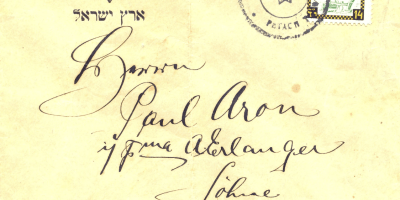 ארץ ישראל
PETACH
14
Herrn
Paul Aron
i/ Fma A. Erlanger
Söhne